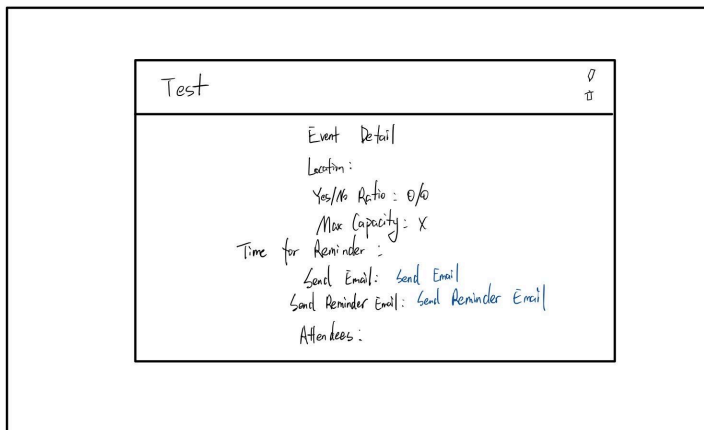 Test
Event Detail
Location:
Yes/No Ratio: 0/0
Max Capacity: X
Time for Reminder:
Send Email: Send Email
Send Reminder Email: Send Reminder Email
Attendees: